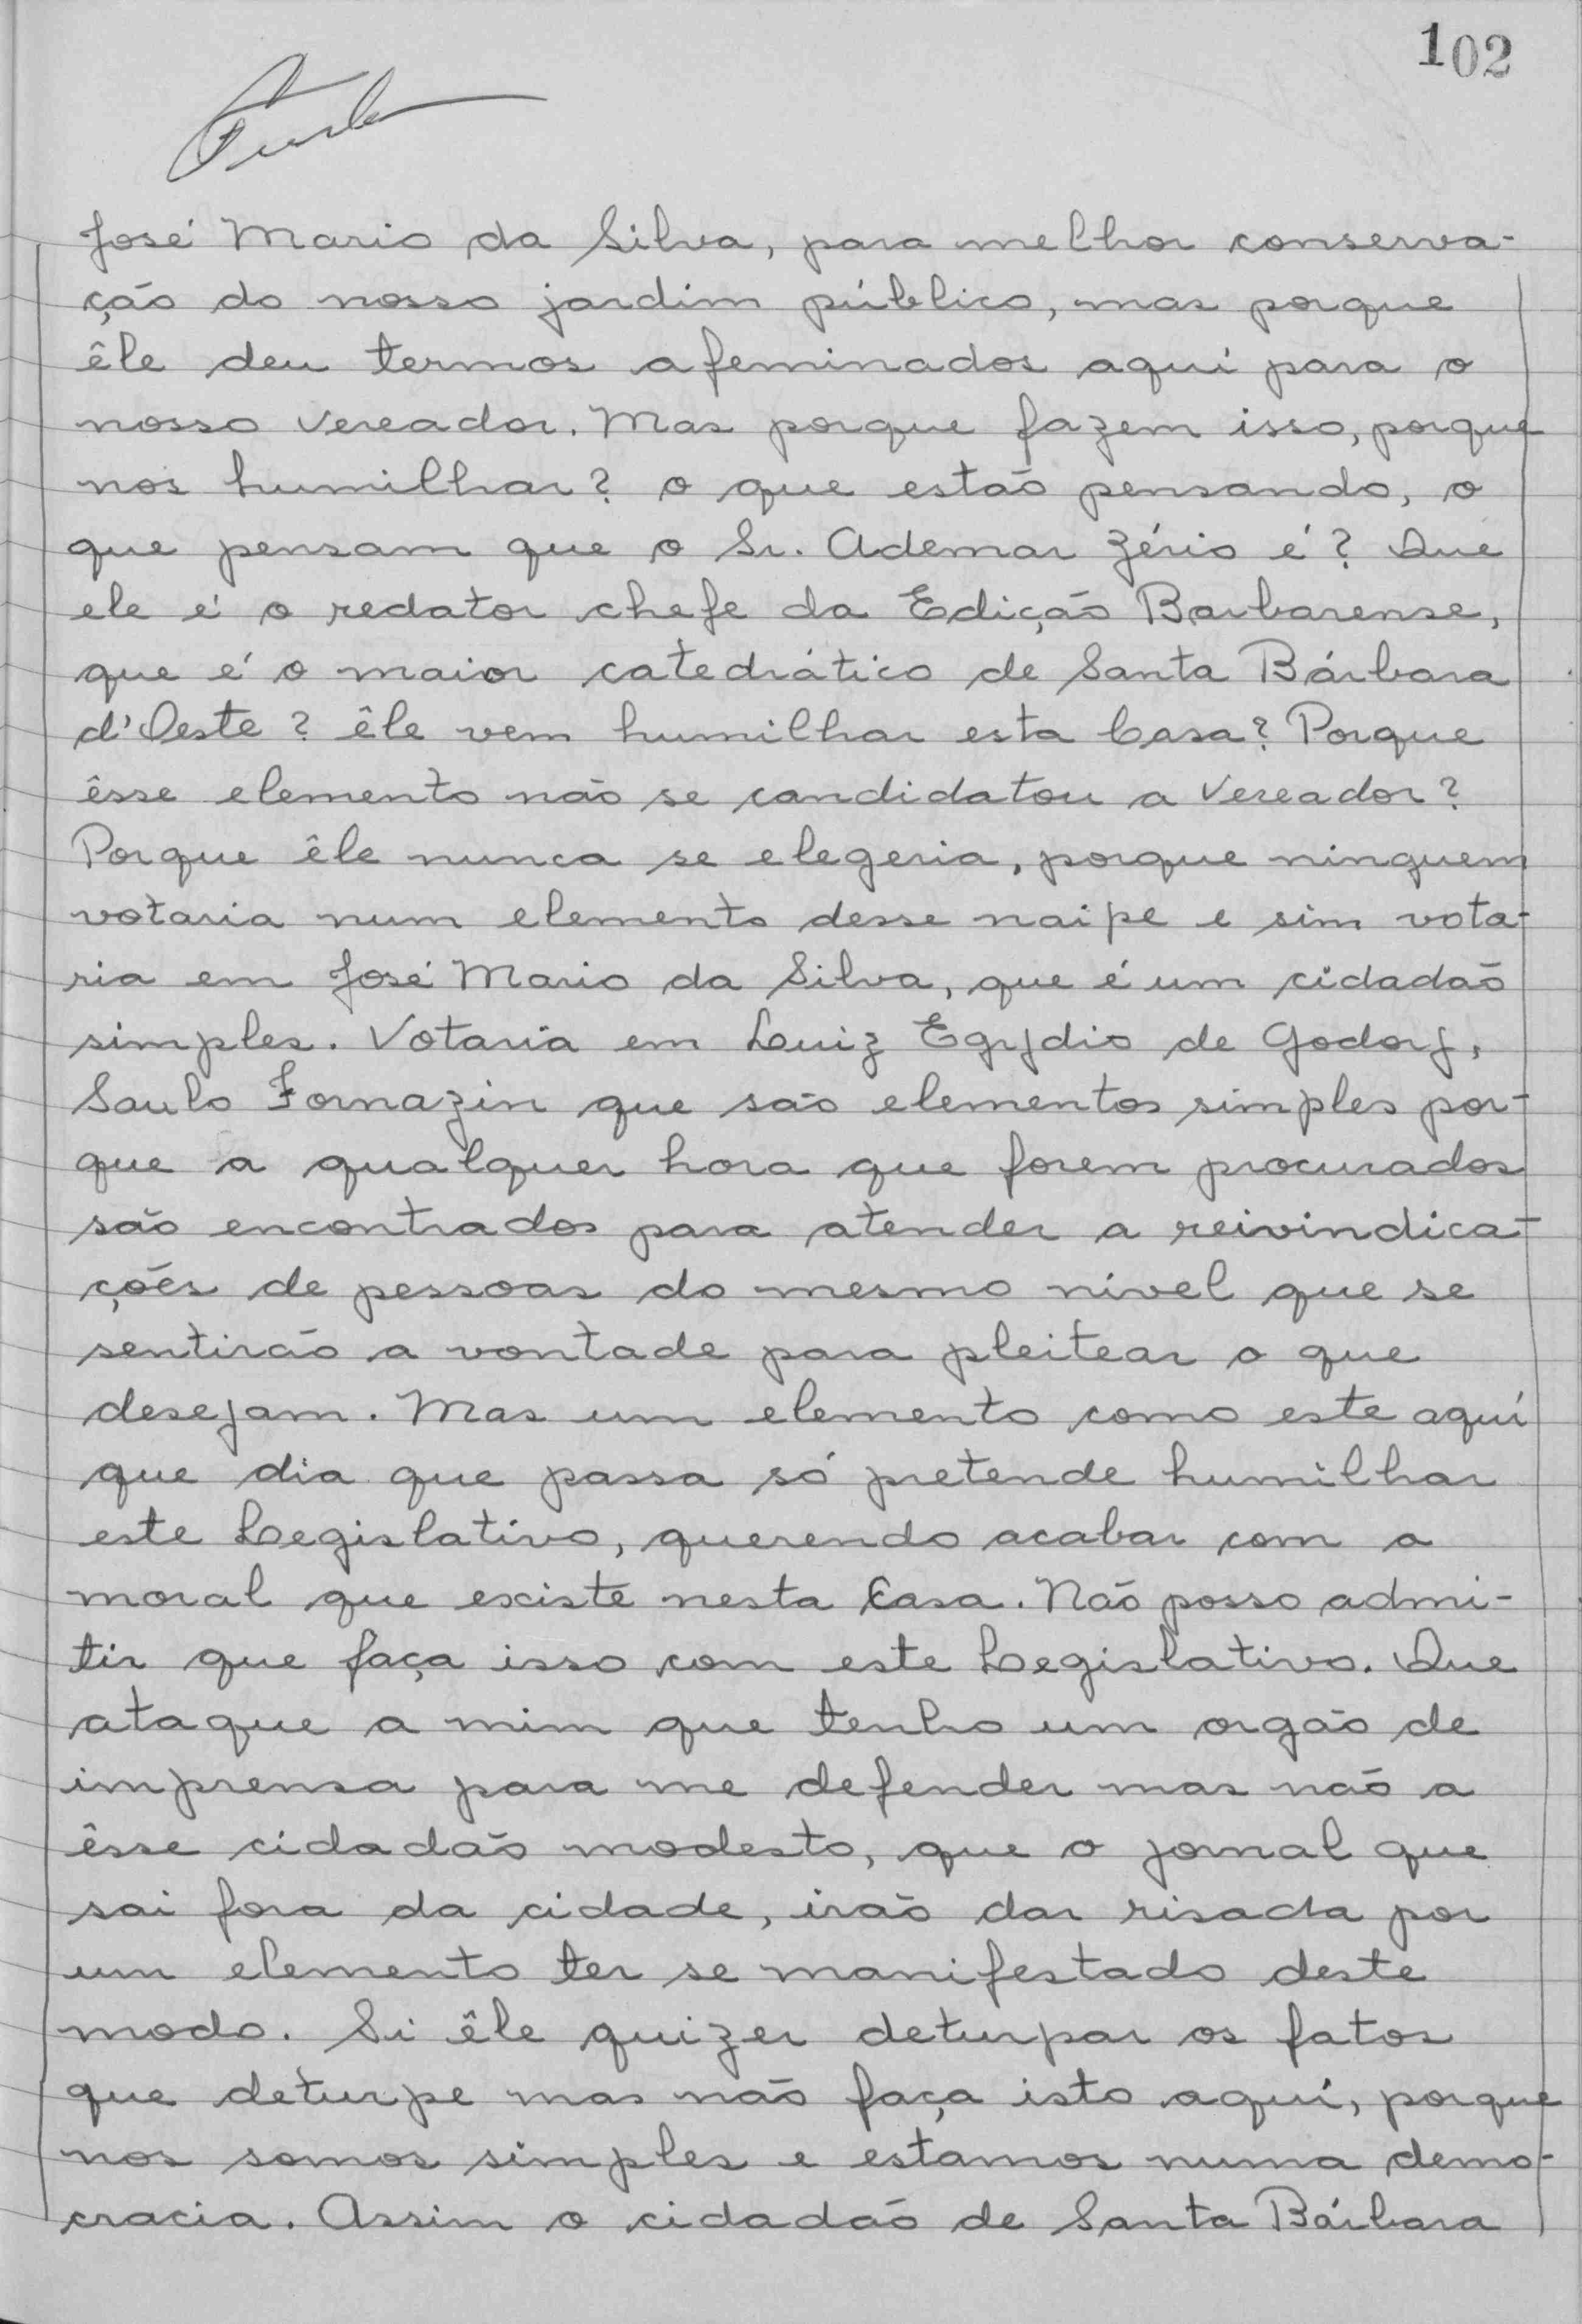 102
José Mario da Silva, para melhor conserva-
ção do nosso jardim público, mas porque
êle deu termos afeminados aquí para o
nosso vereador. Mas porque fazem isso, porque
nos humilhar? o que estão pensando, o
que pensam que o Sr. Ademar Zério é? Que
ele é o redator chefe da Edição Barbarense,
que é o maior catedrático de Santa Bárbara
d'Oeste? êle vem humilhar esta Casa? Porque
êsse elemento não se candidatou a Vereador?
Porque êle nunca se elegeria, porque ninguem
votaria num elemento desse naipe e sim vota-
ria em José Mario da Silva, que é um cidadão
simples. Votaria em Luiz Egydio de Godoy,
Saulo Fornazin que são elementos simples por-
que a qualquer hora que forem procurados
são encontrados para atender a reivindica-
ções de pessoas do mesmo nivel que se
sentirão a vontade para pleitear o que
desejam. Mas um elemento como este aquí
que dia que passa só pretende humilhar
este Legislativo, querendo acabar com a
moral que existe nesta Casa. Não posso admi-
tir que faça isso com este Legislativo. Que
ataque a mim que tenho um orgão de
imprensa para me defender mas não a
êsse cidadão modesto, que o jornal que
sai fora da cidade, irão dar risada por
um elemento ter se manifestado deste
modo. Si êle quizer deturpar os fatos
que deturpe mas não faça isto aquí, porque
nos somos simples e estamos numa demo-
cracia. Assim o cidadão de Santa Bárbara